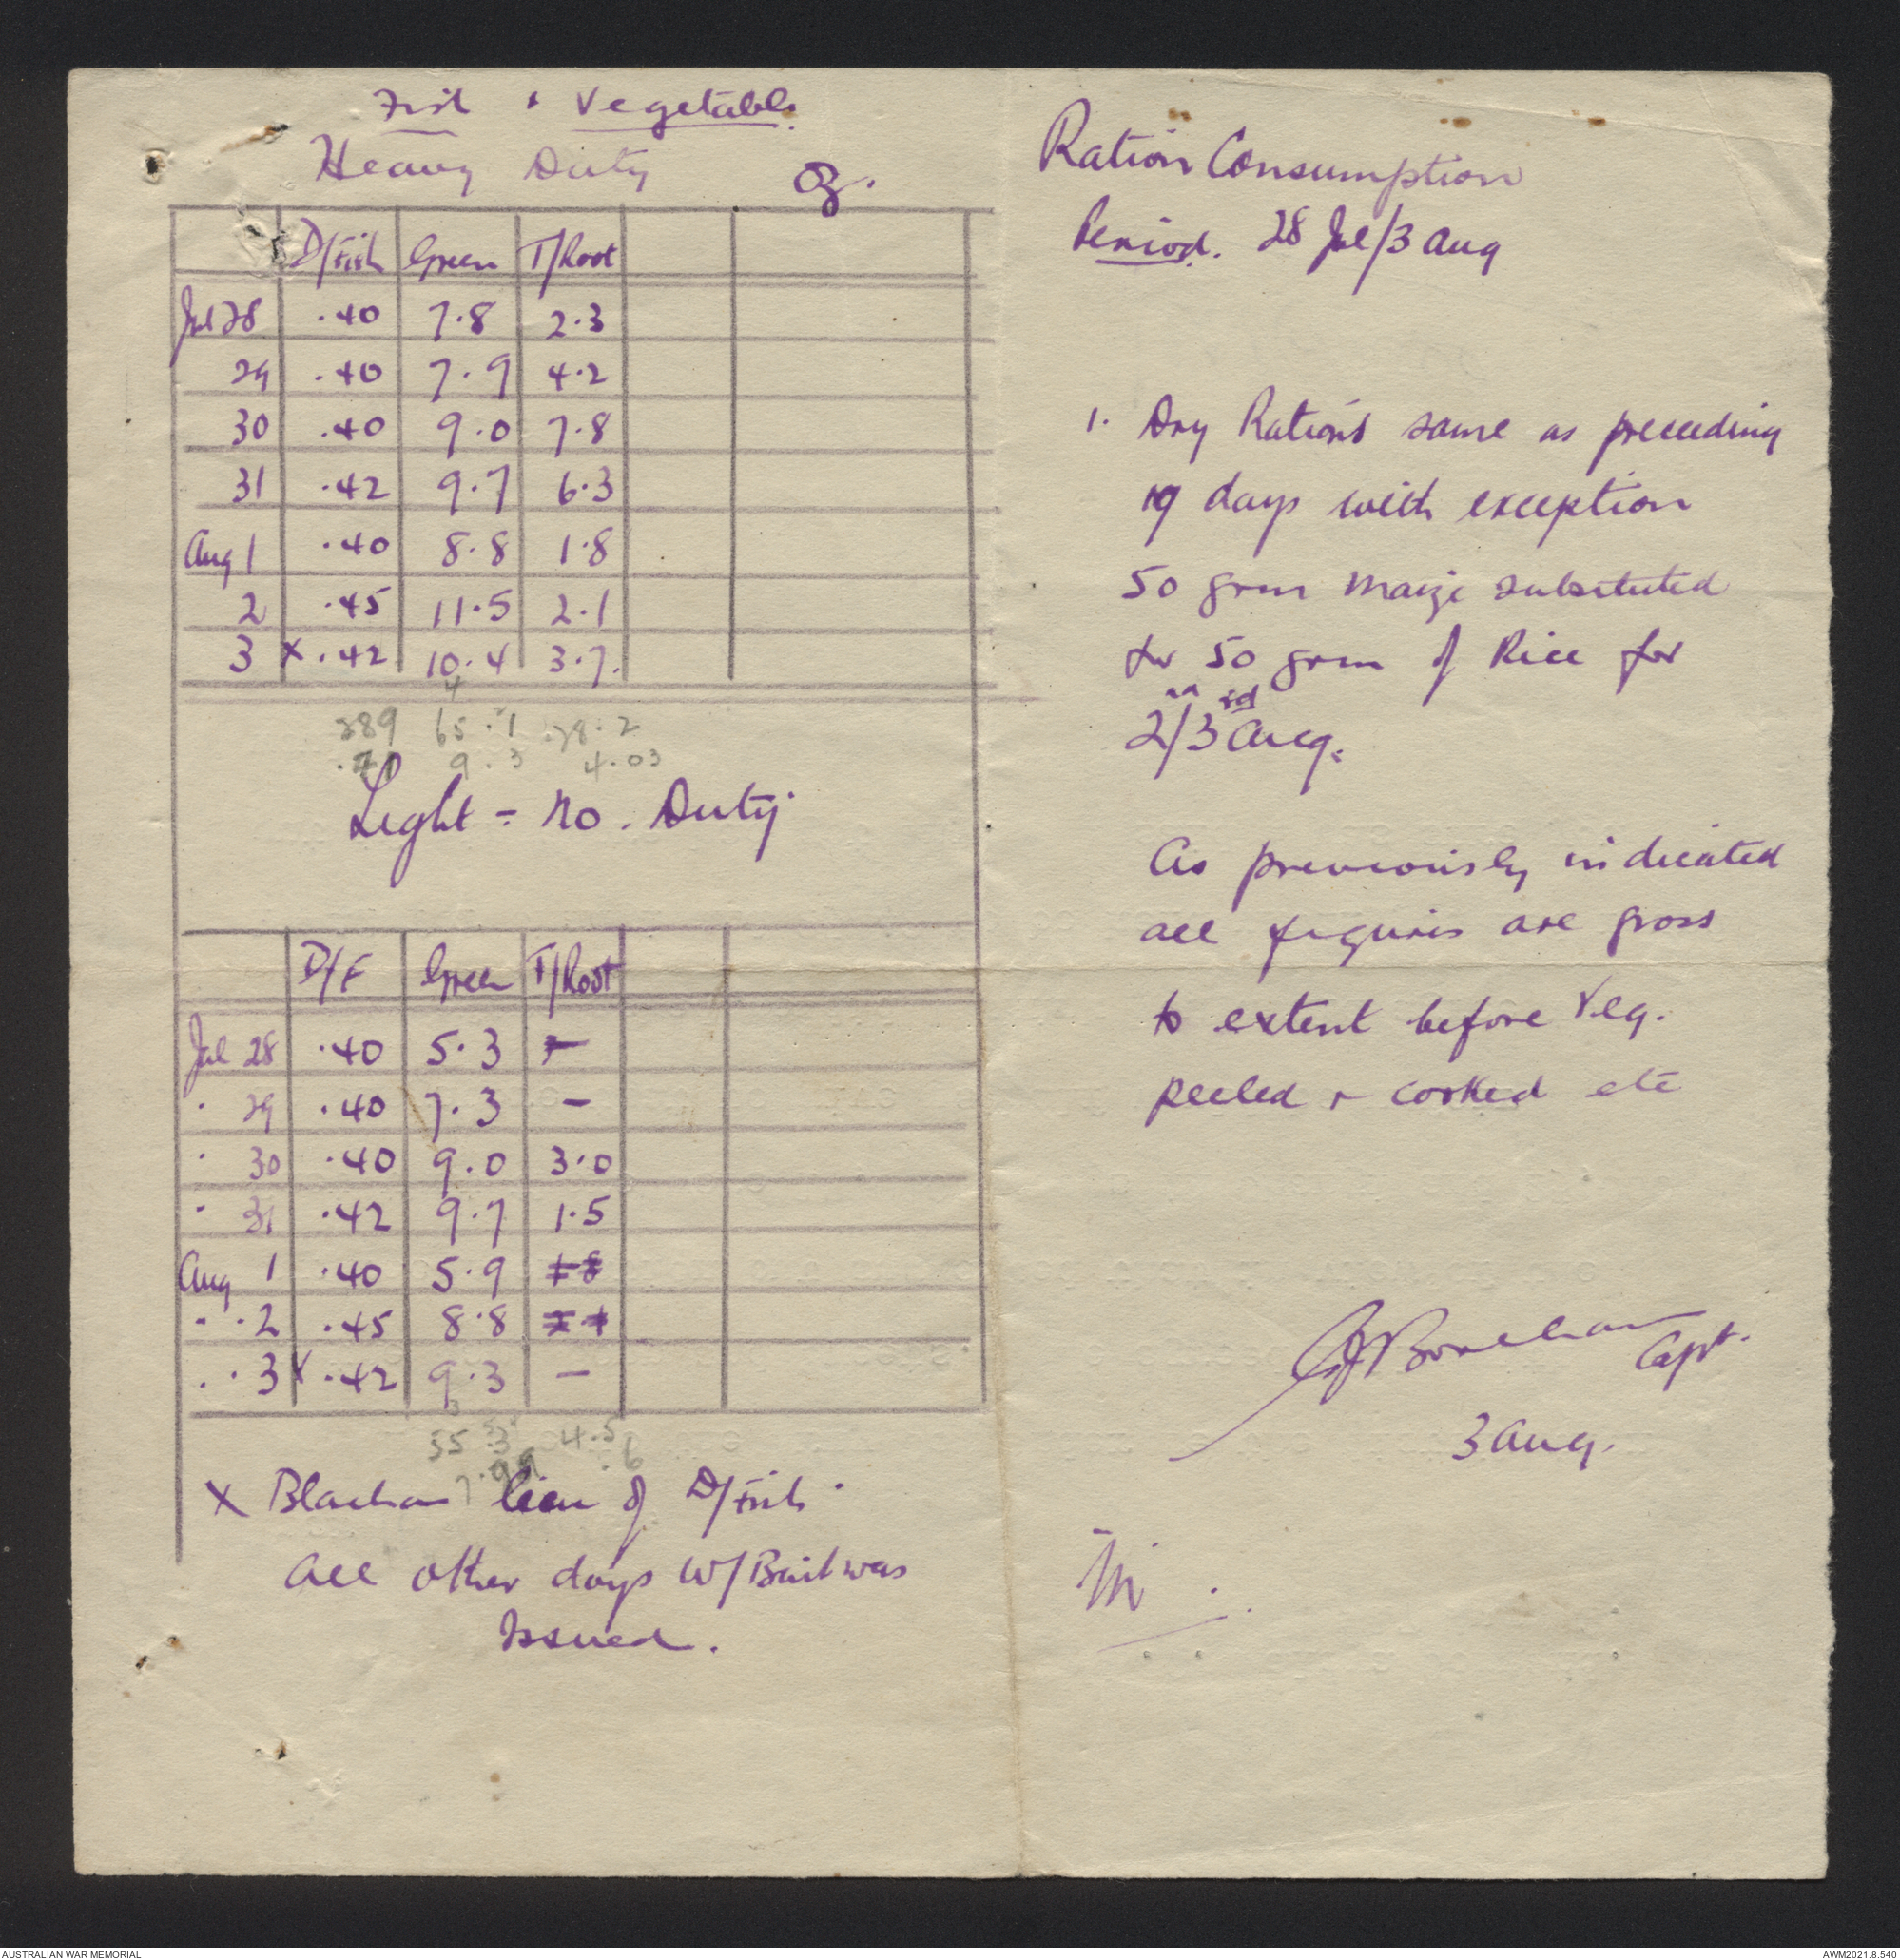 Fish & Vegetable
Heavy Duty oz.
D/Fish Green T/Root
Jul 28 .40 7.8 2.3
29 .40 7.9 4.2
30 .40 9.0 7.8
31 .42 9.7 6.3
Aug 1 .40 8.8 1.8
2 .45 11.5 2.1
3 x .42 10.4 3.7.
4
289 65.1 28.2
9.3 4.03
Light = No. Duty
D/F Green T/Root
Jul 28 .40 5.3 -
" 29 .40 7.3 -
" 30 .40 9.0 3.0
" 31 .42 9.7 1.5
Aug 1 .40 5.9
" " 2 .45 8.8
" " 3 x .42 9.3 -
55 4.5
7.99 .6
X Blachan lieu of D/Fish.
all other days W/Bait was
Issued.
Ration Consumption
Period. 28 Jul/3 Aug
1. Dry Rations same as preceeding
19 days with exception
50 grm Maize substituted
for 50 grm of Rice for
2/3rd Aug.
As previously indicated
all figures are gross
to extent before Veg.
peeled & cooked etc
Capt.
3 Aug.
AUSTRALIAN WAR MEMORIAL
AWM2021.8.540